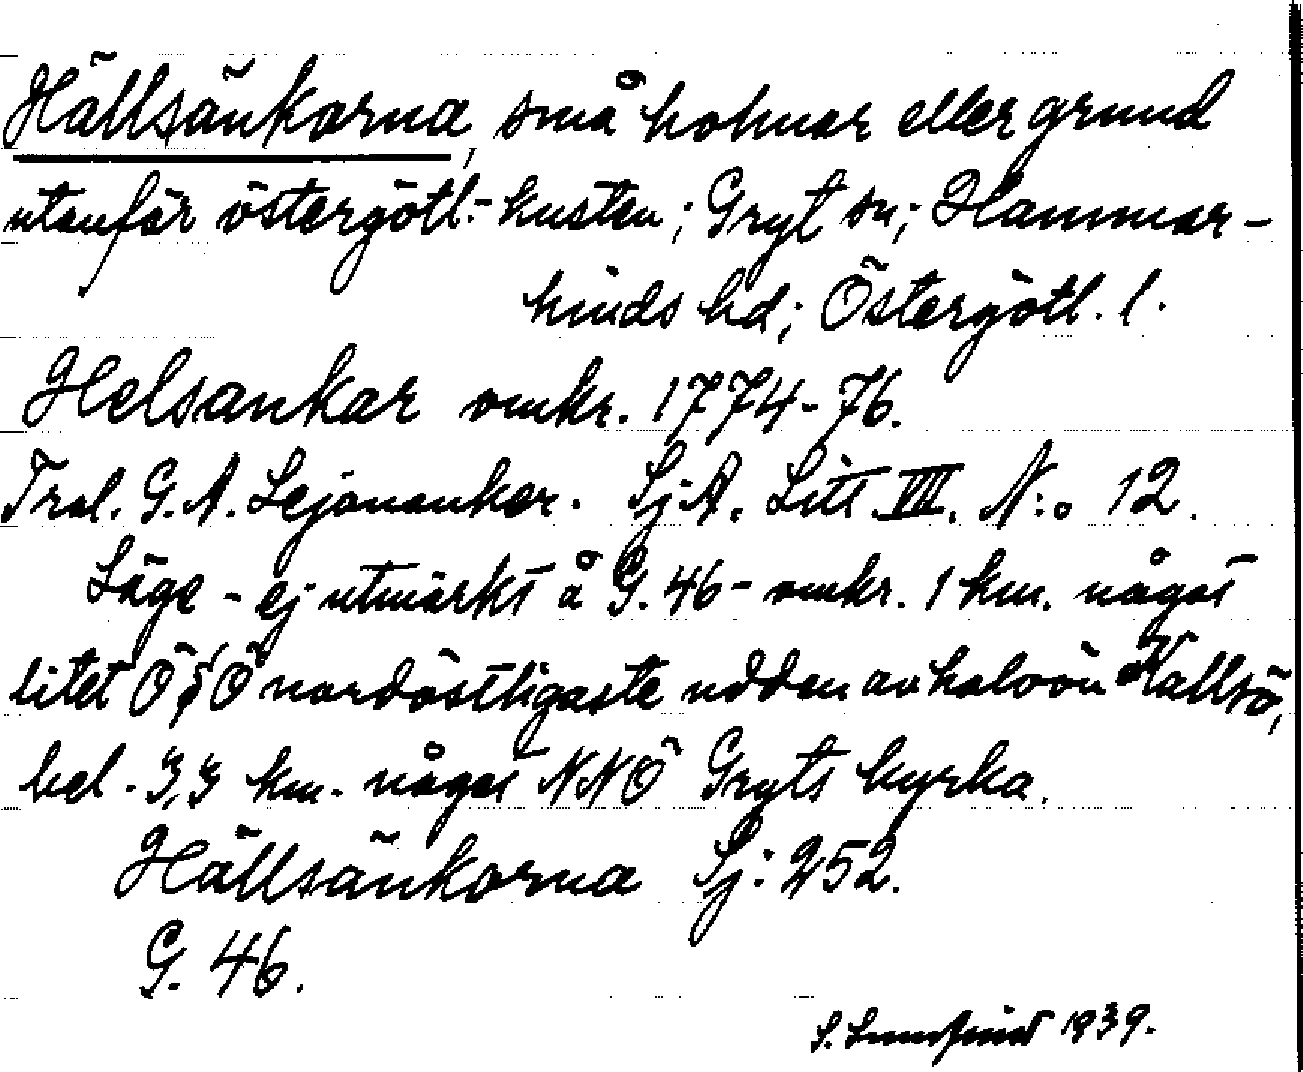 Hällsänkorna, små holmar eller grund
utanför östergötl.-kusten; Gryt sn; Hammar-
kinds hd; Östergötl. l.
Helsankar omkr. 1774-76.
Trol. G. A. Lejonanker. Sj.A. Litt. VIII. N:o 12.
Läge - ej utmärkt å G. 46 - omkr. 1 km. något
litet Ö § Ö nordöstligaste udden av halvön Kallsö,
bel. 3,3 km. något NNÖ Gryts kyrka.
Hällsänkorna Sj: 252.
G. 46.
S. 1939.